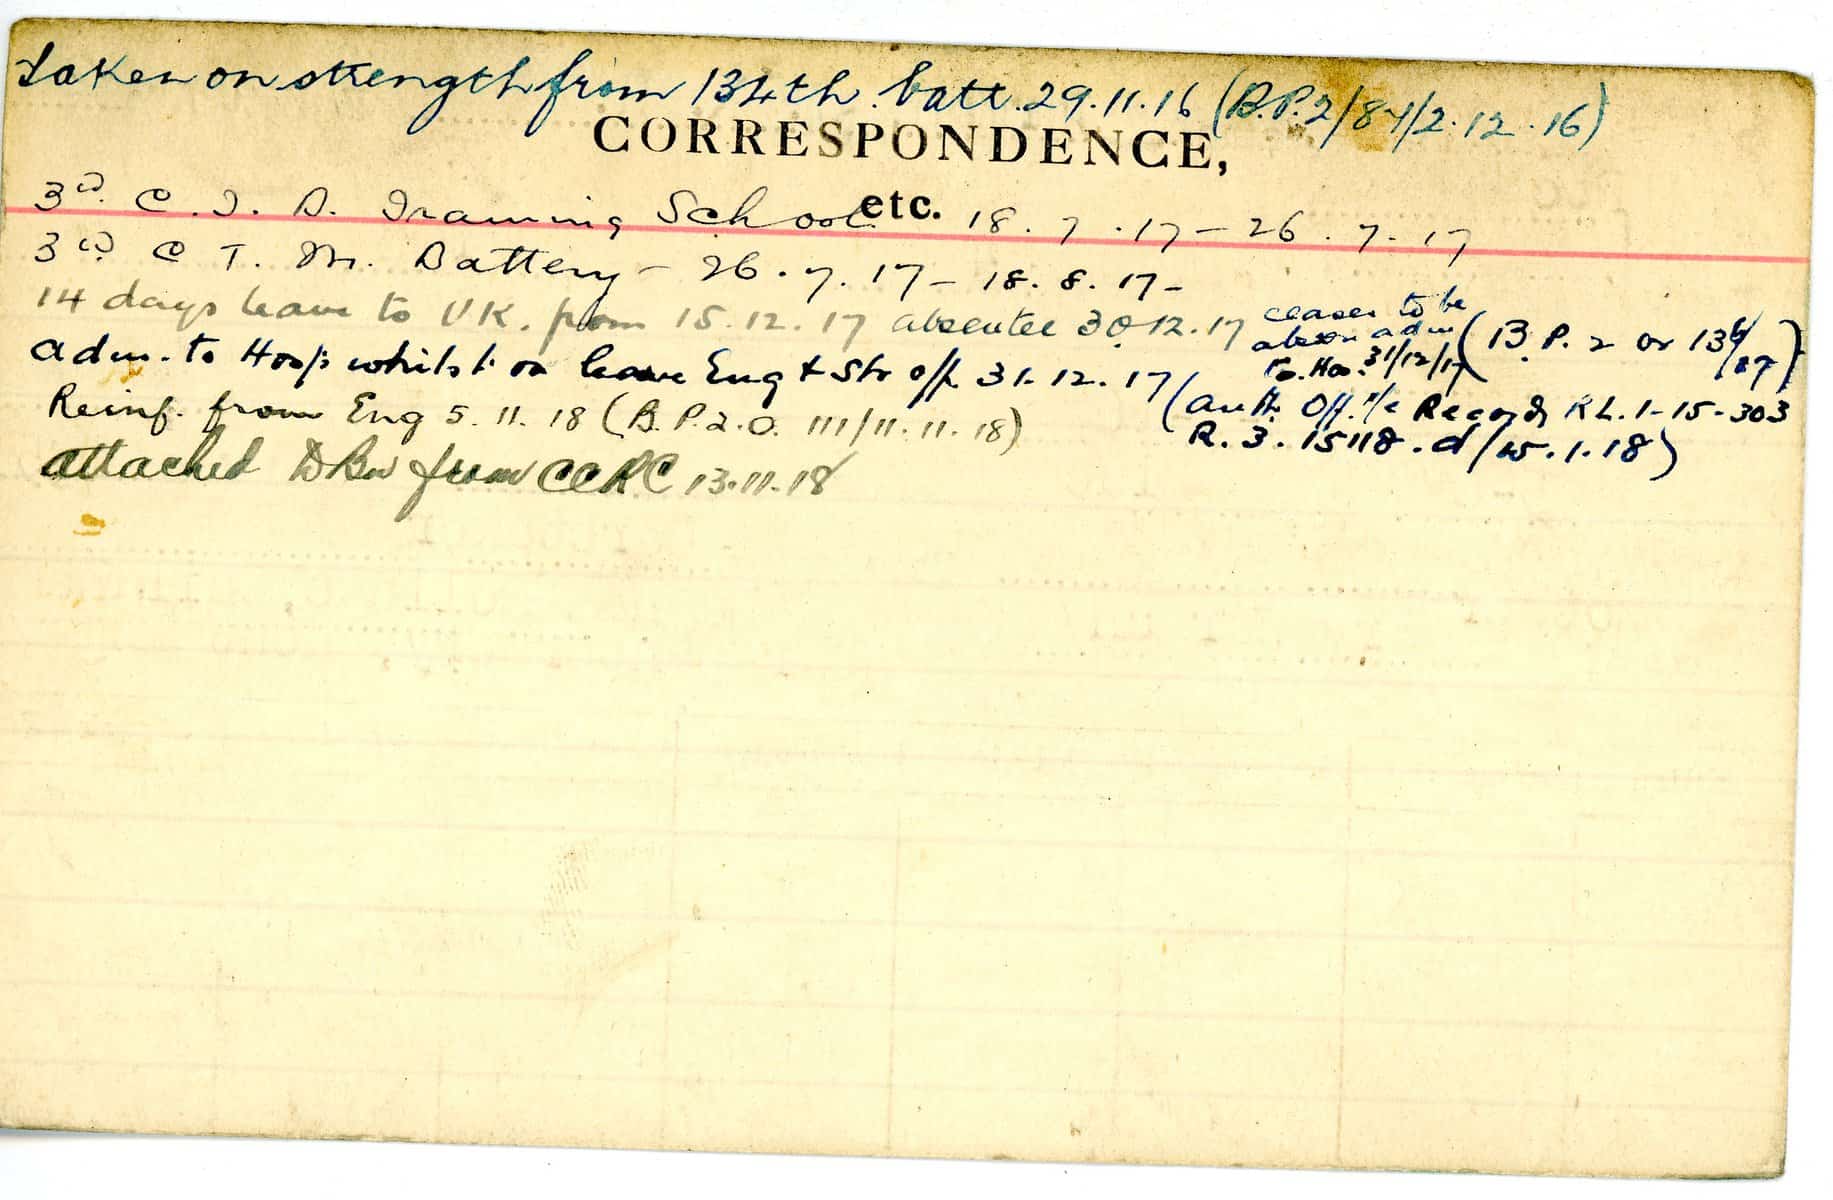 Taken on strength from 134th. batt. 29.11.16 (B.P.2/84/2.12.16)
CORRESPONDENCE,
etc.
3rd. C. I. D. Training School 18.7.17 - 26.7.17
3rd. C T. M. Battery - 26.7.17 - 18.8.17 -
14 days leave to UK. from 15.12.17 absentee 30.12.17 ceases to be
absen adm
to. Hos. 31/12/17 (B.P. 2 or 136/
Adm. to Hosp whilst on leave Eng & Str off 31.12.17 (auth. Off. i/c Records RL.1-15-303
R.3.15118.d/15.1.18)
Reinf. from Eng 5.11.18 (B.P.2.O. 111/11.11.18)
attached D Bn from CCRC 13.11.18